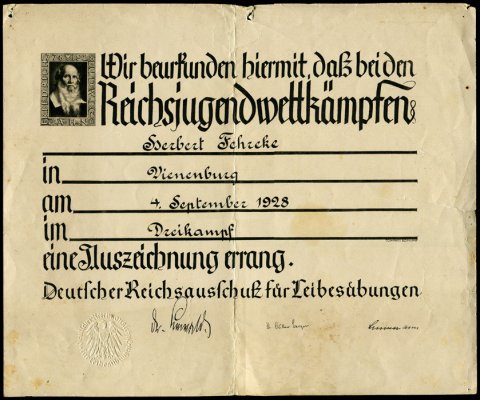 Wir beurkunden hiermit, daß bei den
Reichsjugendwettkämpfen
Herbert Fehreke
in Vienenburg
am 4. September 1928
im Dreikampf
eine Auszeichnung errang.
Deutscher Reichsausschuß für Leibesübungen